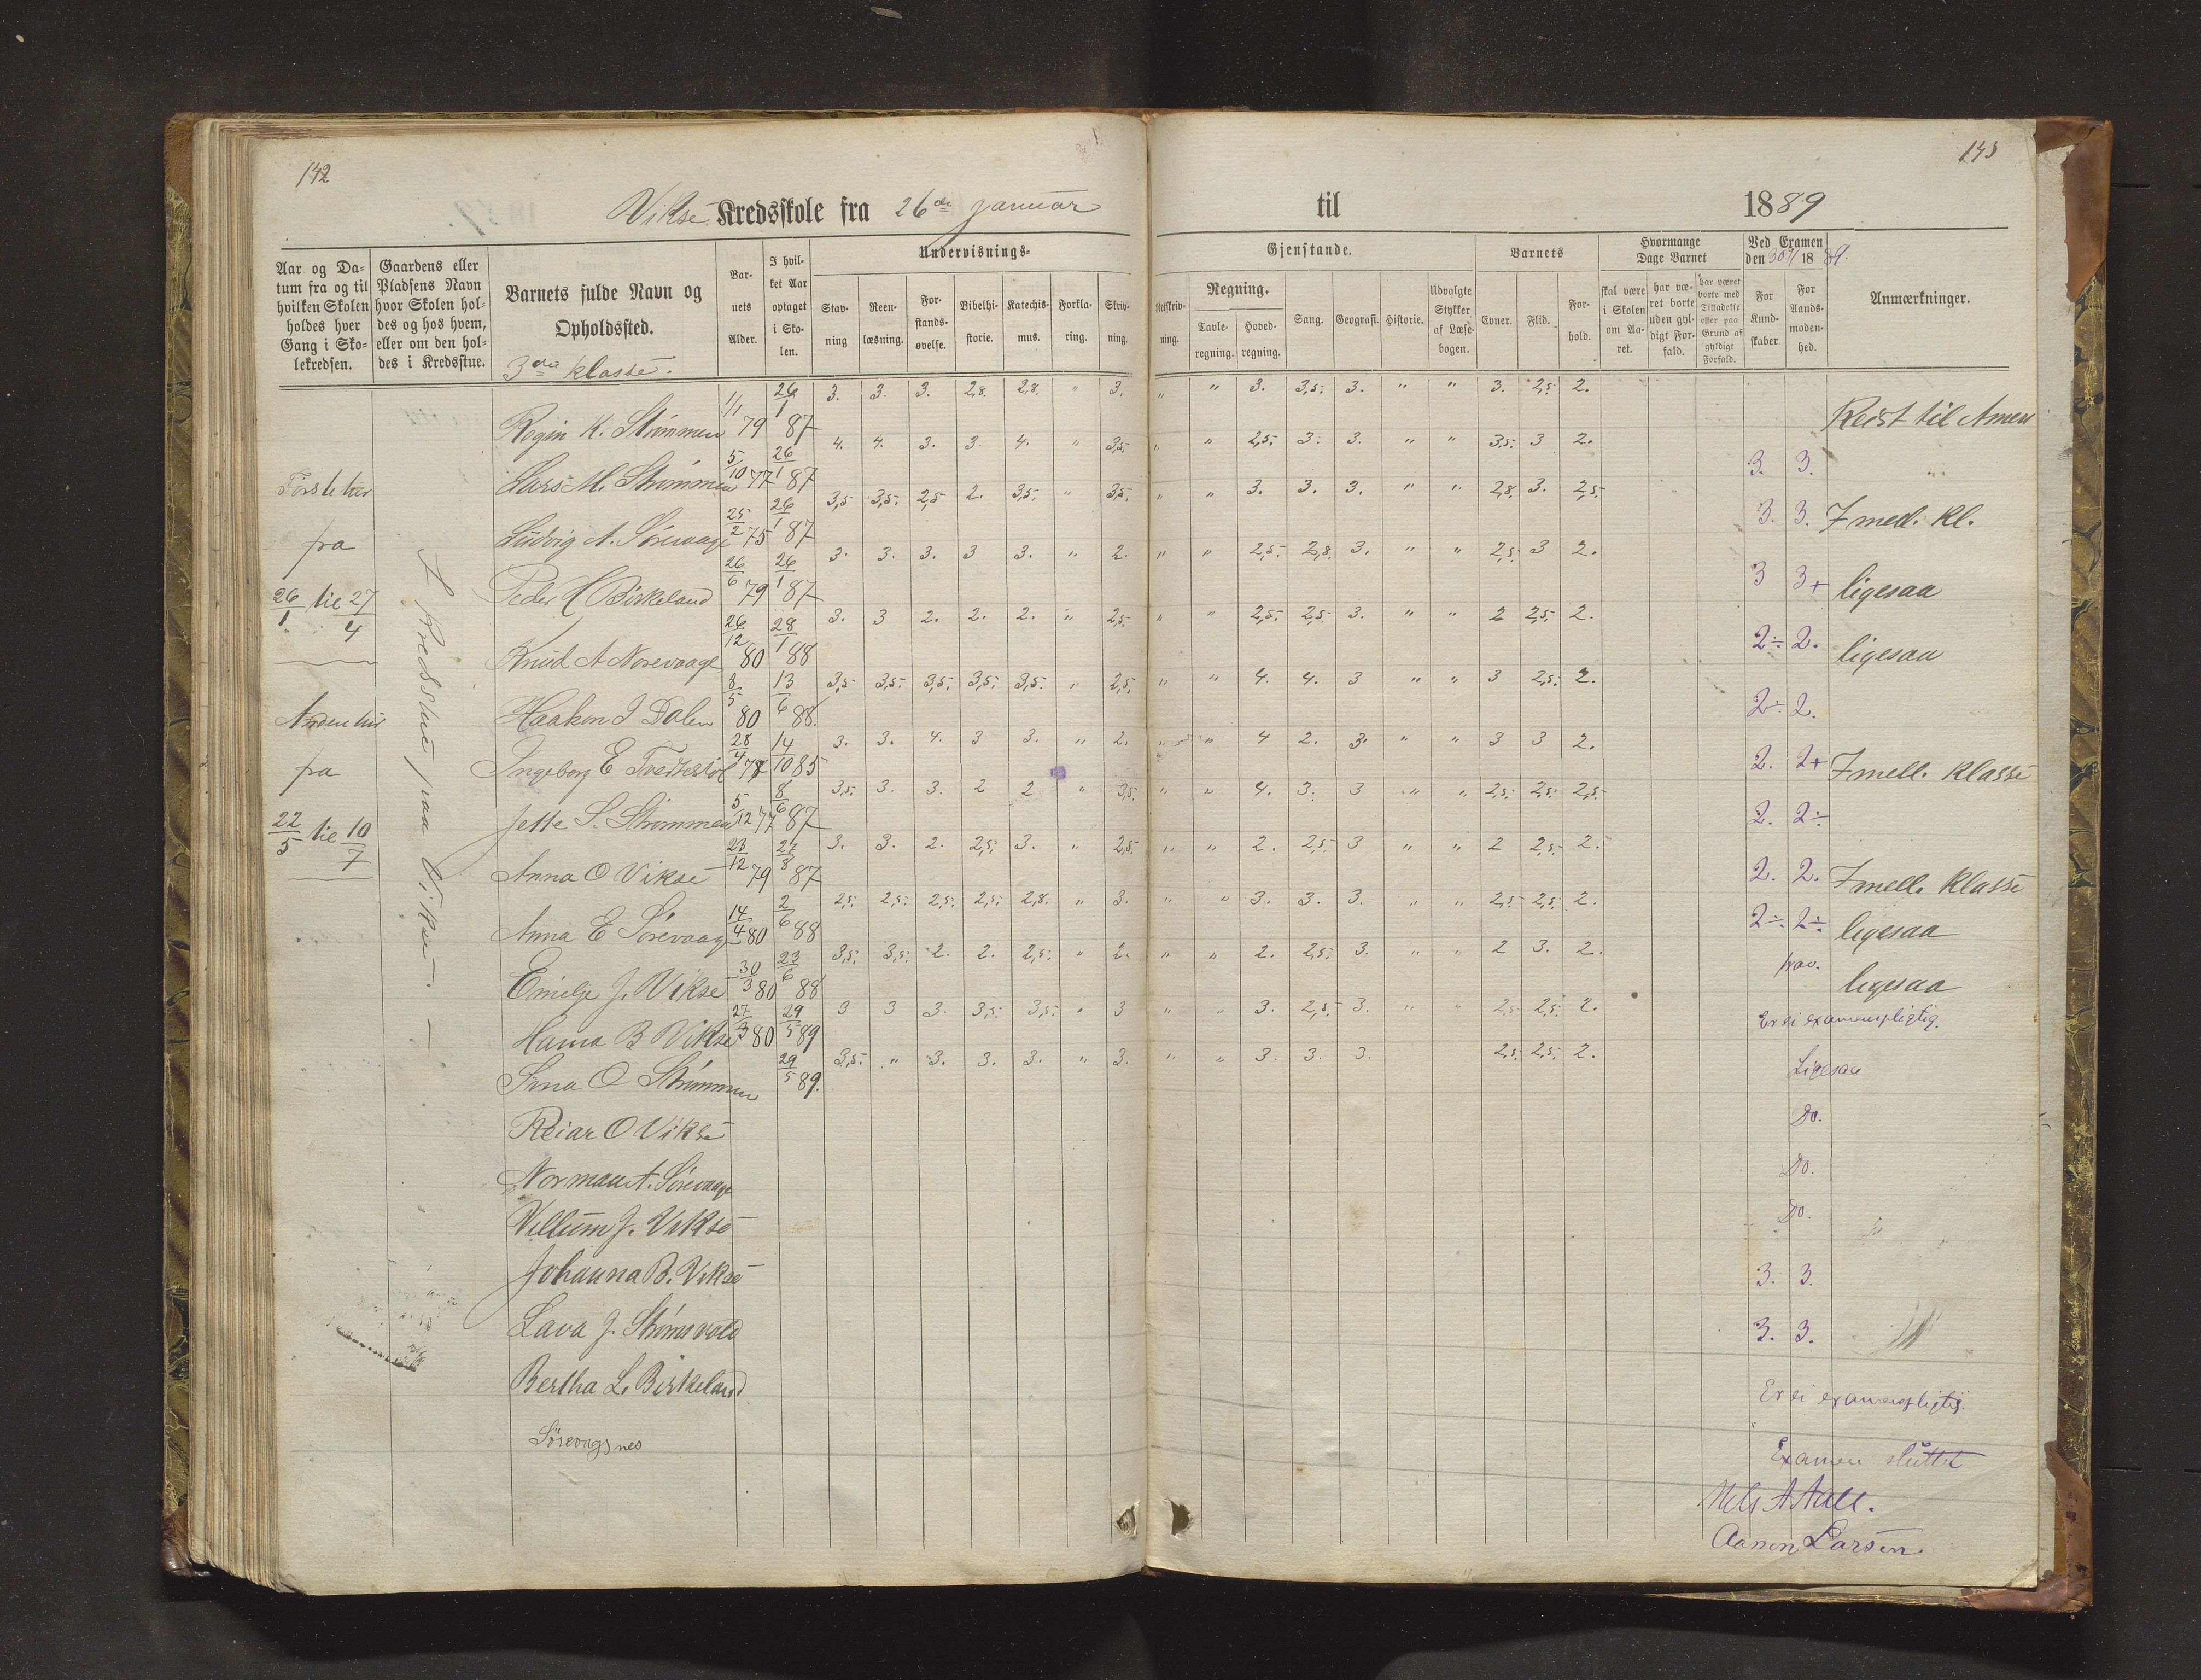 142
143
Vikse Kredsskole fra 26de januar til 1889
Aar og Datum fra og til hvilken Skolen holdes hver Gang i Skolekredsen.
Gaardens eller Pladsens Navn hvor Skolen holdes og hos hvem, eller om den holdes i Kredsstue.
Barnets fulde Navn og Opholdssted.
3die klasse.
Barnets Alder.
I hvilket Aar optaget i Skolen.
Undervisnings-
Stavning
Reenlæsning.
Forstandsøvelse.
Bibelhistorie.
Katechismus.
Forklaring.
Skrivning.
Gjenstande.
Retskrivning.
Regning.
Tavleregning.
Hovedregning.
Sang.
Geografi.
Historie.
Udvalgte Stykker af Læsebogen.
Barnets
Evner.
Flid.
Forhold.
Hvormange Dage Barnet
skal være i Skolen om Aaret.
har været borte uden gyldigt Forfald.
har været borte med Tilladelse eller paa Grund af gyldigt Forfald.
Ved Examen den 30/11 1889.
For Kundskaber
For Aandsmodenhed.
Anmærkninger.
Første har
fra
26/1 til 27/4
Anden har
fra
22/5 til 10/7
I Kredsstue paa Vikse
Rogin K. Strømmen 1/1 79 26/1 87 3. 3. 3. 2,8. 2,8. " 3. " " 3. 3,5. 3. " " 3. 2,5. 2. Reist til Amen
Lars M. Strømmen 5/10 77 26/1 87 4. 4. 3. 3. 4. " 3,5. " " 2,5. 3. 3. " " 3,5. 3 2. 3. 3.
Ludvig A. Sørevaage 25/2 75 26/1 87 3,5 3,5. 2,5 2. 3,5. " 3,5. " " 3. 3. 3. " " 2,8. 3. 2,5. 3. 3. I mell. kl.
Peder H Birkeland 26/6 79 26/1 87 3. 3. 3. 3 3. " 2. " " 2,5. 2,8. 3. " " 2,5. 3 2. 3 3+ ligesaa
Knud A Norevaage 26/12 80 28/1 88 3. 3 2. 2. 2. " 2,5. " " 2,5. 2,5 3. " " 2 2,5. 2. 2÷ 2. ligesaa
Haakon I Dalen 8/5 80 13/6 88. 3,5 3,5. 3,5. 3,5. 3,5. " 2,5. " " 4. 4. 3 " " 3 2,5. 2. 2÷ 2.
Ingeborg E Tvedtestøl 28/4 78 14/10 85 3. 3. 4. 3 3. " 2. " " 4 2. 3. " " 3 3 2. 2. 2+ I mell. klasse
Jette S. Strømmen 5/12 77 8/6 87 3,5. 3. 3. 2 2 " 3,5. " " 4. 3. 3 " " 2,5. 2,5. 2,5. 2. 2÷
Anna O Vikse 28/12 79 27/8 87 3. 3. 2. 2,5. 3. " 2,5. " " 2. 2,5. 3 " " 2 2,5. 2. 2. 2. I mell. klasse
Anna E Sørevaage 14/4 80 2/6 88 2,5. 2,5. 2,5. 2,5. 2,8. " 3. " " 3. 3. 3. " " 2,5 2,5. 2. 2÷ 2÷ ligesaa
Emilje J. Vikse 30/3 80 23/6 88 3,5. 3,5. 2. 2. 2,5. " 2. " " 2. 2,5. 3. " " 2 3. 2. frav. ligesaa
Hanna B Vikse 27/3 80 29/5 89 3 3 3. 3,5. 3,5. " 3 " " 3. 2,5. 3. " " 2,5 2,5. 2. Er ei examenspligtig.
Sina O Strømmen 29/5 89. 3,5. " 3. 3. 3. " 3. " " 3. 3. 3. 2,5. 2,5. 2. Ligesaa
Reiar O Vikse Do.
Norman A. Sørevaage Do.
Villum J. Vikse Do.
Johanna B. Vikse 3. 3.
Lava J. Strømsvold 3. 3.
Bertha L. Birkeland Er ei examenspligtig.
Sørevagsnes
Examen sluttet
Nels A Aall.
Aanon Larsen